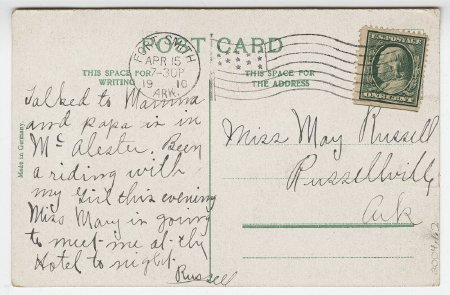 POST CARD
FORT SMITH
APR 15
7-30P
1910
ARK.
THIS SPACE FOR
WRITING
THIS SPACE
FOR THE
THE ADDRESS
ONE CENT
Made in Germany.
Talked to Mamma
and papa is in
McAlester. Been
a riding with
my Girl this evening
Miss Mary in going
to meet me at the
Hotel to night.
Russell
Miss May Russell
Russellville,
Ark